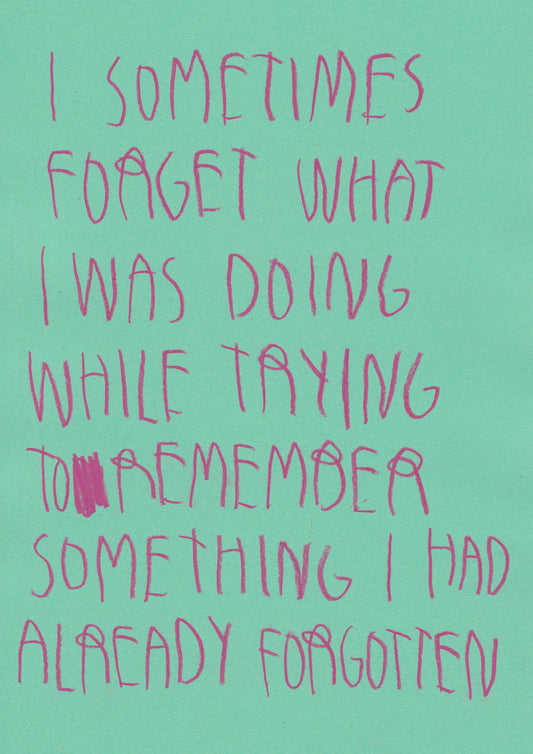 I SOMETIMES
FORGET WHAT
I WAS DOING
WHILE TRYING
TO REMEMBER
SOMETHING I HAD
ALREADY FORGOTTEN